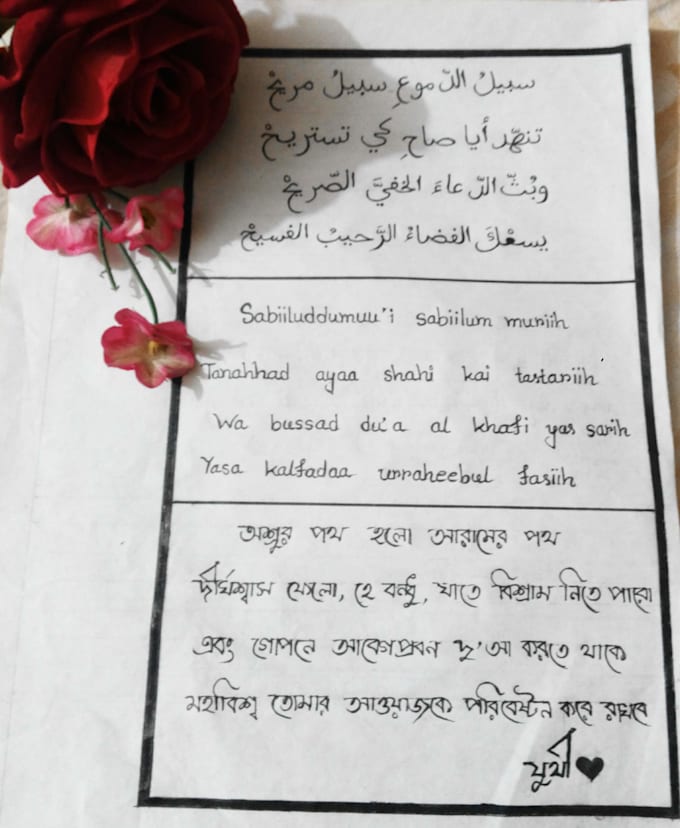 سبيلُ الدّموعِ سبيلُ مريحْ
تنهّد أيا صاحِ كي تستريحْ
وبُثّ الدّعاءَ الخفيَّ الصّريحْ
يسعْكَ الفضاءُ الرَّحيبُ الفسيحْ
Sabiiluddumuu'i sabiilum muriih
Tanahhad ayaa shahi kai tastariih
Wa bussad du'a al khafi yas sarih
Yasa kalfadaa urraheebul fasiih
অশ্রুর পথ হলো আরামের পথ
দীর্ঘশ্বাস ফেলো, হে বন্ধু, যাতে বিশ্রাম নিতে পারো
এবং গোপনে আবেগপ্রবন দু'আ করতে থাকো
মহাবিশ্ব তোমার আওয়াজকে পরিবেষ্টন করে রাখবে
যুথী